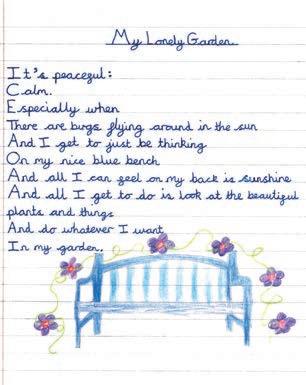 My Lonely Garden
It's peaceful:
Calm.
Especially when
There are bugs flying around in the sun
And I get to just be thinking
On my nice blue bench
And all I can feel on my back is sunshine
And all I get to do is look at the beautiful
plants and things
And do whatever I want
In my garden.